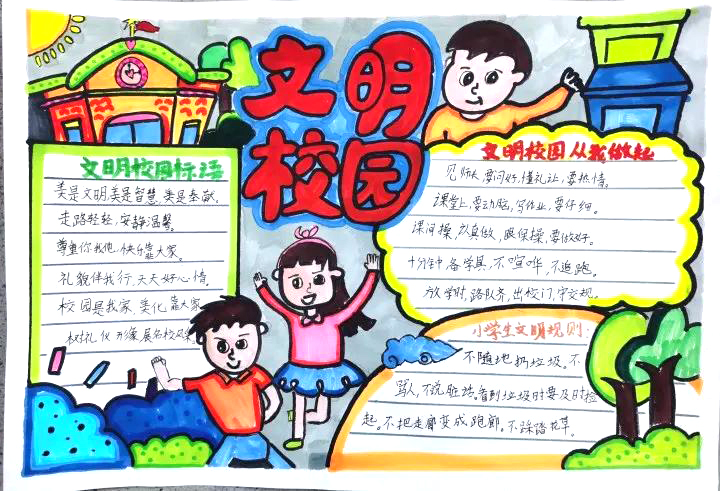 文明
校园
文明校园标语
美是文明,美是智慧,美是奉献.
走路轻轻,安静温馨.
尊重你我他,快乐靠大家.
礼貌伴我行,天天好心情.
校园是我家,美化靠大家
礼仪形象展
文明校园从我做起
见师长,要问好,懂礼让,要热情.
课堂上,要动脑,写作业,要仔细.
课间操,认真做,眼保操,要做好.
十分钟,备学具,不喧哗,不追跑.
放学时,路队齐,出校门,守交规.
小学生文明规则:
不随地扔垃圾.不
骂人,不说脏话.看到垃圾时要及时捡
起.不把走廊变成跑廊.不踩踏花草.